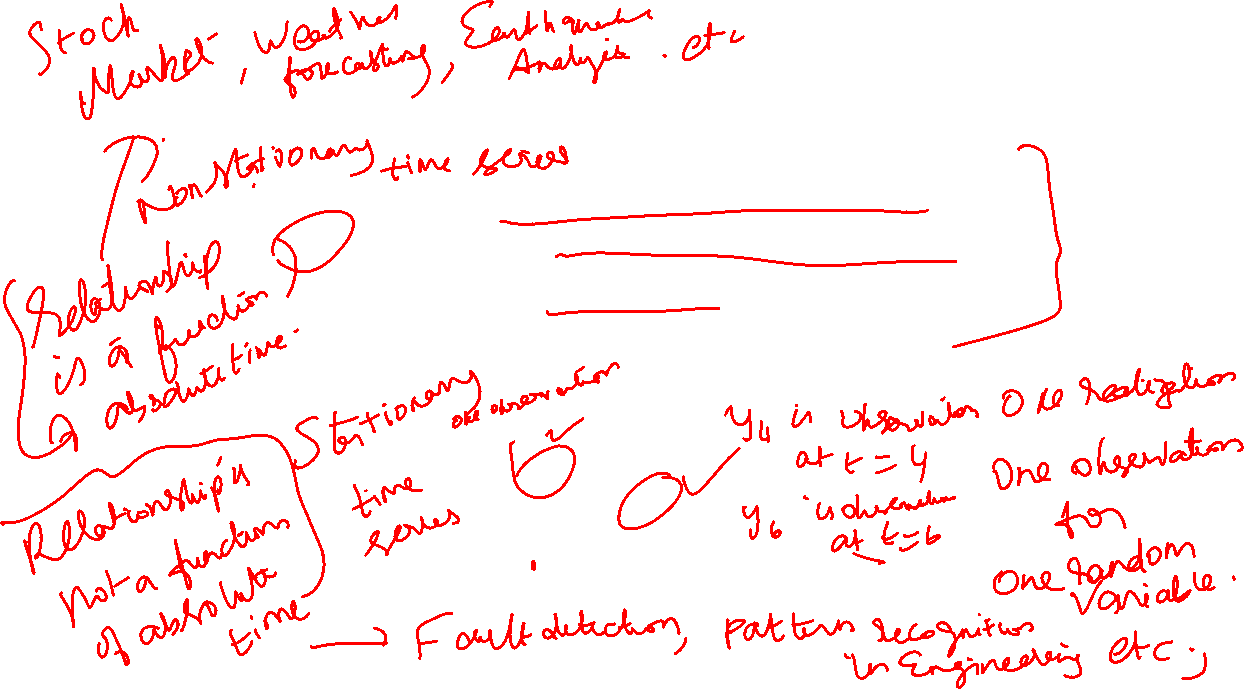 Stock
Market, Weather
forecasting, Earthquake
Analysis. etc
Nonstationary time series
Relationship
is a function
absolute time.
Stationary
time
series
one observation
y4 is observation
at t = 4
y6 is observation
at t = 6
One realization
One observation
for
One random
Variable.
Relationship is
not a function
of absolute
time
→ Fault detection, pattern recognition
in Engineering etc.;